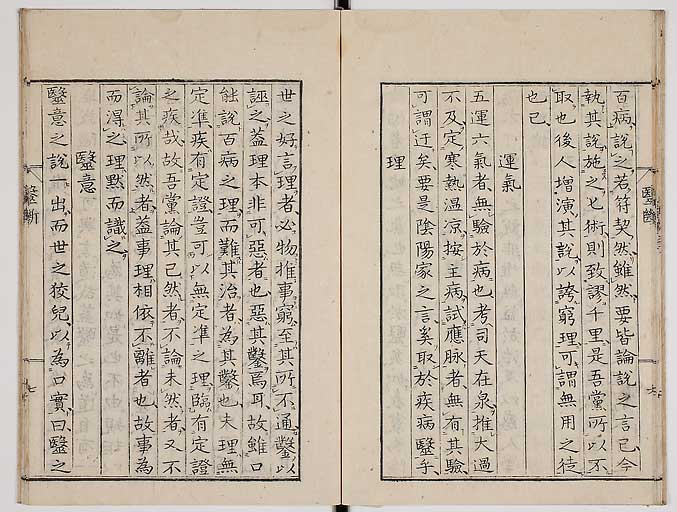 百病、説之、若符契然、雖然、要皆論説之言已、今
執其説、施之匕術、則致謬千里、是吾黨所以不
取也、後人増演其説、以誇窮理、可謂無用之徒
也已、
運氣
五運六氣者、無驗於病也、考司天在泉、推大過
不及、定寒熱温凉、按主病、試應脉者、無有其驗、
可謂迂矣、要是陰陽家之言、奚取於疾病醫乎、
理
世之好言理者、必物推事窮、至其所不通、鑿以
誣之、蓋理本非可惡者也、惡其鑿焉耳、故雖口
能説百病之理、而難其治者、為其鑿也、夫理無
定準、疾有定證、豈可以無定準之理、臨有定證
之疾哉、故吾黨論其已然者、不論未然者、又不
論其所以然者、蓋事理相依、不離者也、故事為
而得之、理默而識之、
醫意
醫意之説一出、而世之狡兒、以為口實、曰、醫之
醫斷
醫斷
七